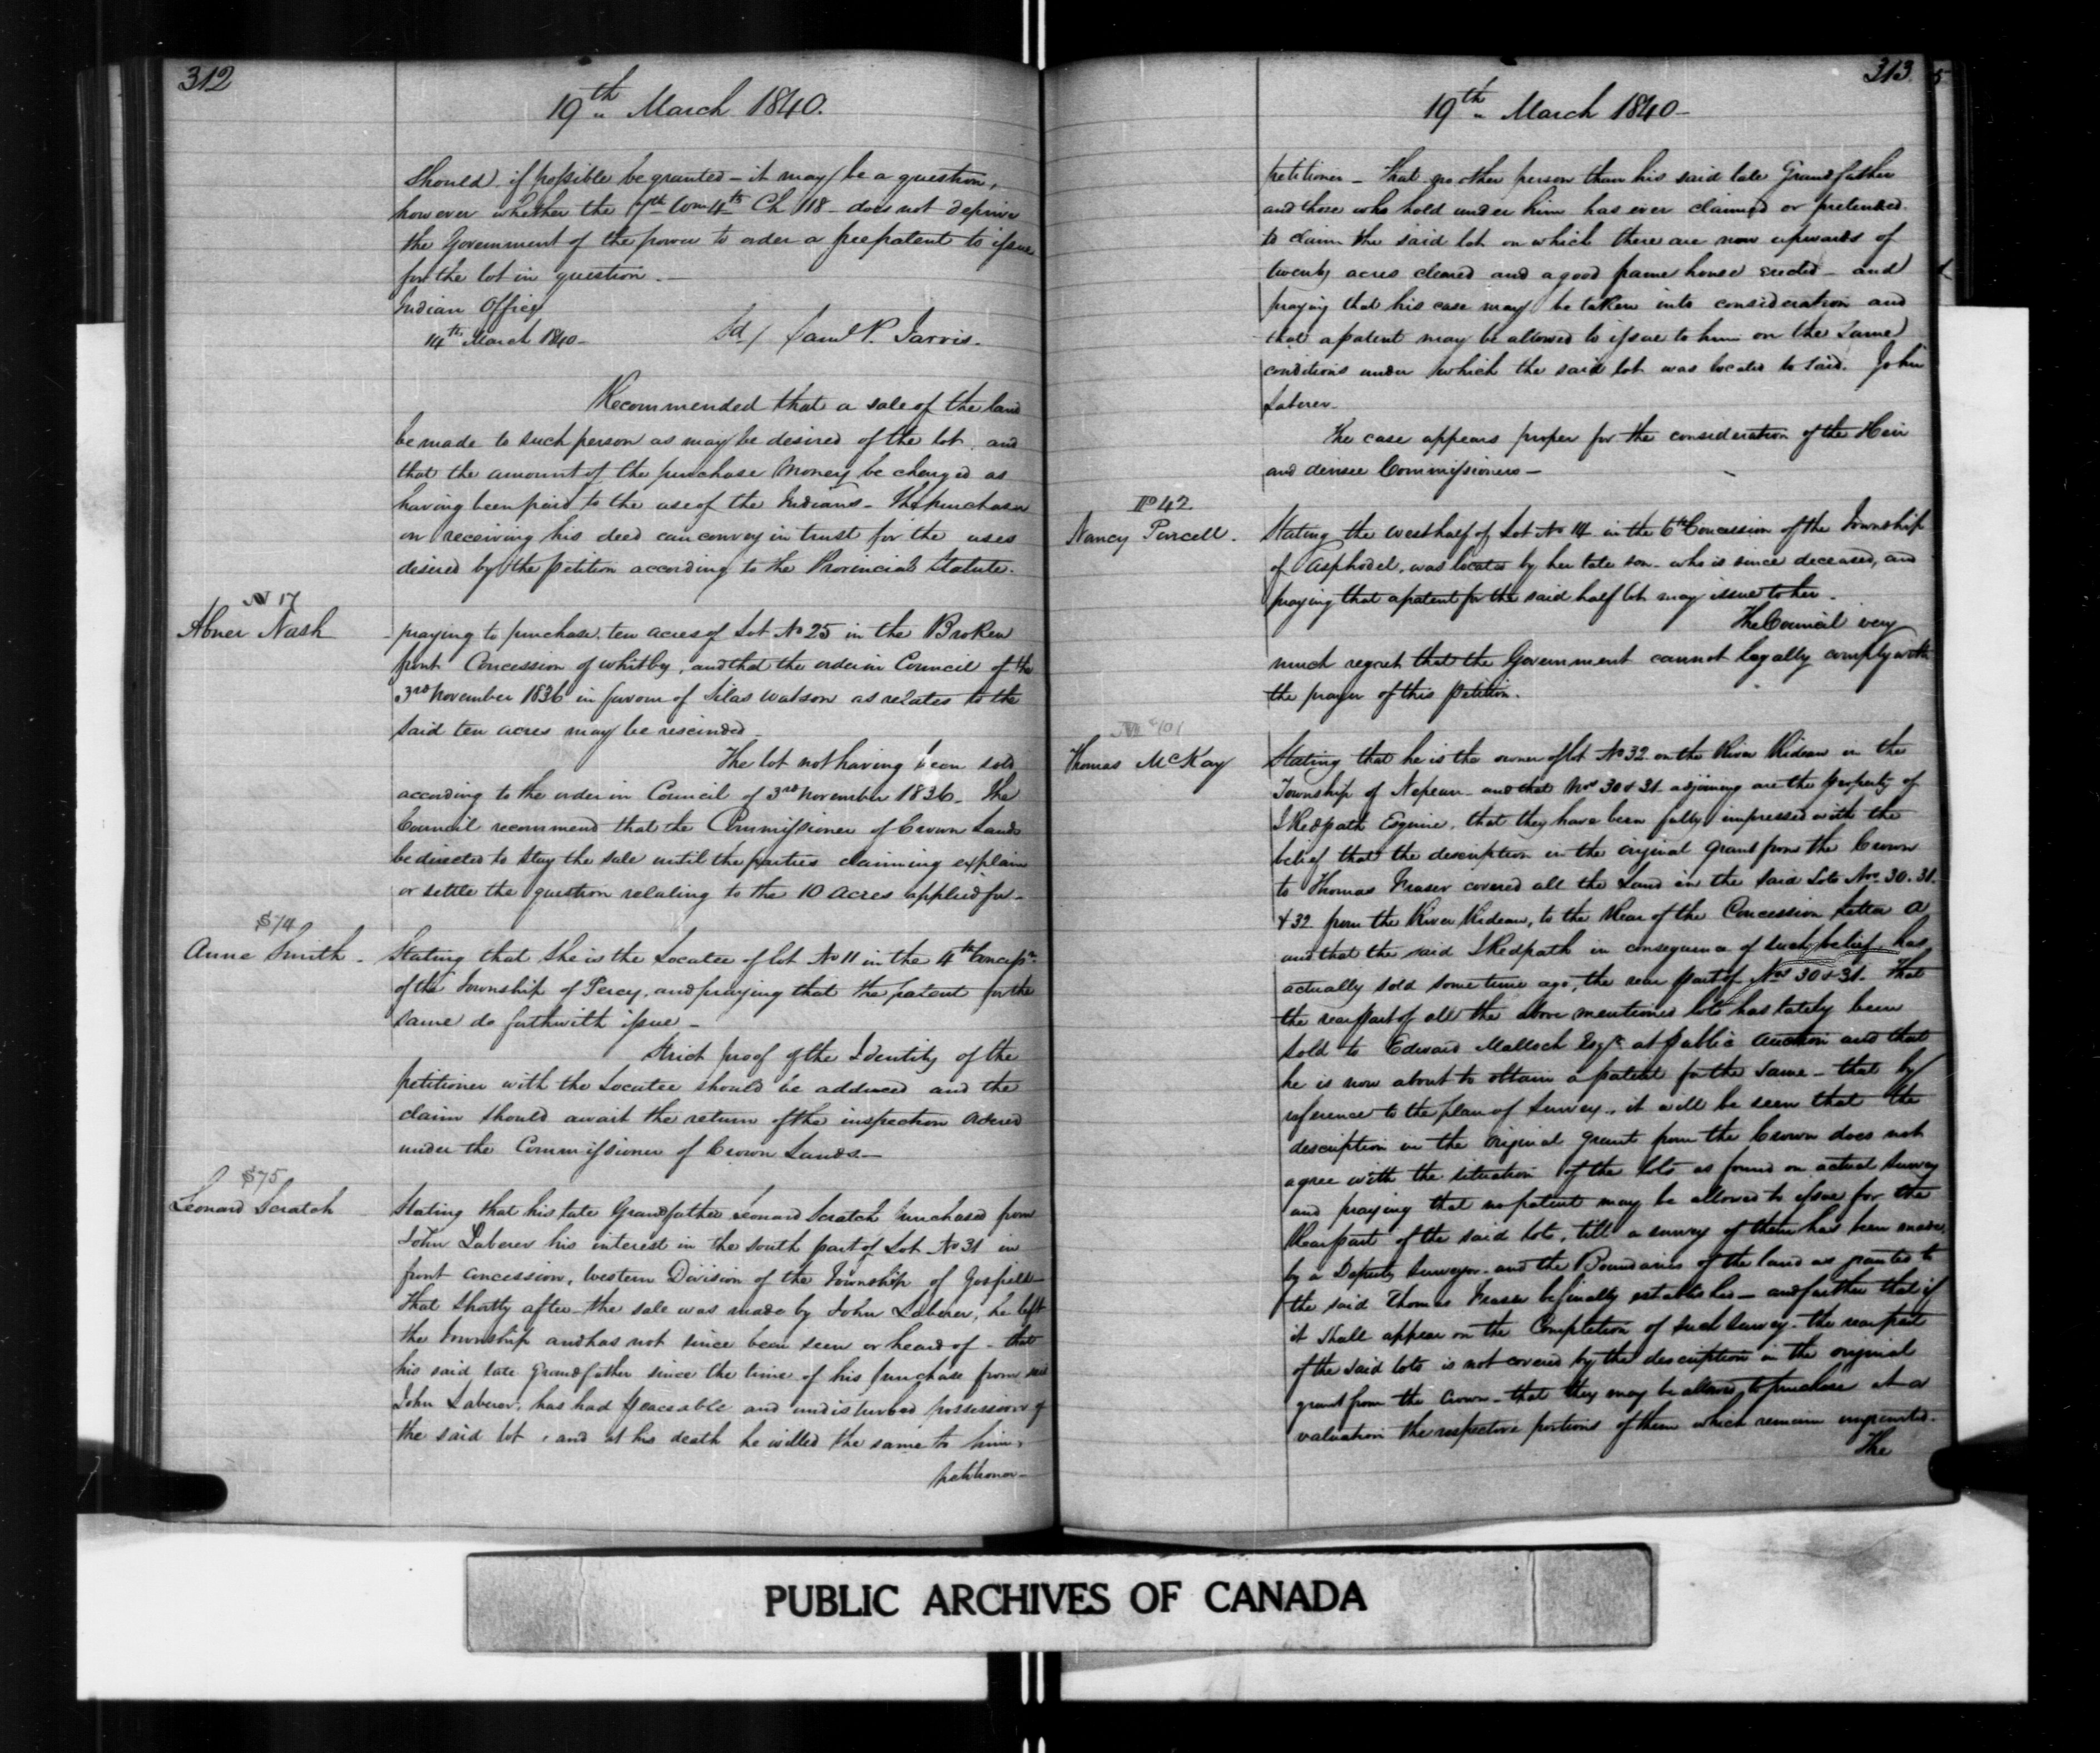 312
19th March 1840.
should if possible be granted - it may be a question,
however whether the 7th Wm 4th Ch 118 - does not deprive
the Government of the power to order a free patent to issue
for the lot in question. -
Indian Office
14th March 1840 -
Sd/ Saml P. Jarvis.
Recommended that a sale of the land
be made to such person as may be desired of the lot and
that the amount of the purchase Money be charged as
having been paid to the use of the Indians - The purchaser
on receiving his deed can convey in trust for the uses
desired by the petition according to the Provincial Statute.
N 17
Abner Nash
praying to purchase ten acres of Lot No 25 in the Broken
front Concession of Whitby, and that the order in Council of the
3rd November 1836 in favour of Silas Watson as relates to the
said ten acres may be rescinded -
The lot not having been sold
according to the order in Council of 3rd November 1836 - The
Council recommend that the Commissioner of Crown Lands
be directed to stay the sale until the parties claiming explain
or settle the question relating to the 10 Acres applied for -
S 74
Anne Smith -
Stating that she is the Locatee of lot No 11 in the 4th Concessn
of the Township of Percy, and praying that the patent for the
same do forthwith issue -
Strict proof of the Identity of the
petitioner with the Locatee should be adduced and the
claim should await the return of the inspection ordered
under the Commissioner of Crown Lands -
S 75
Leonard Scratch
Stating that his late Grandfather Leonard Scratch purchased from
John Laberer his interest in the south part of Lot No 31 in
front concession, Western Division of the Township of Gosfield -
That shortly after the sale was made by John Laberer, he left
the Township and has not since been seen or heard of - that
his said late Grandfather since the time of his purchase from said
John Laberer, has had peaceable and undisturbed possession of
the said lot, and at his death he willed the same to him,
petitioner -
313
19th March 1840 -
petitioner - That no other person than his said late Grandfather
and those who hold under him has ever claimed or pretended
to claim the said lot on which there are now upwards of
twenty acres cleared and a good frame house erected - and
praying that his case may be taken into consideration and
that a patent may be allowed to issue to him on the same
conditions under which the said lot was located to said John
Laberer -
The case appears proper for the consideration of the Heir
and devisee Commissioners -
P 42
Nancy Purcell.
Stating the west half of Lot No 14 in the 6th Concession of the Township
of Asphodel, was located by her late son - who is since deceased, and
praying that a patent for the said half lot may issue to her.
The Council very
much regret that the Government cannot legally comply with
the prayer of this petition.
Thomas McKay
Stating that he is the owner of lot No 32 on the River Rideau in the
Township of Nepean - and that Nos 30 & 31 adjoining are the property of
J Redpath Esquire, that they have been fully impressed with the
belief that the description in the original grant from the Crown
to Thomas Fraser covered all the Land in the said Lots Nos 30. 31.
& 32 from the River Rideau, to the Rear of the Concession letter A
and that the said J Redpath in consequence of such belief has
actually sold some time ago, the rear part of Nos 30 & 31. That
the rear part of all the above mentioned lots has lately been
sold to Edward Malloch Esqr at public auction and that
he is now about to obtain a patent for the same - that by
reference to the plan of Survey, it will be seen that the
description in the original grant from the Crown does not
agree with the situation of the lots as found on actual Survey
and praying that no patent may be allowed to issue for the
Rear part of the said lots, till a survey of them has been made,
by a Deputy Surveyor - and the Boundaries of the land as granted to
the said Thomas Fraser be finally established - and further that if
it shall appear on the Completion of such Survey - the rear part
of the said lots is not covered by the description in the original
grant from the Crown - that they may be allowed to purchase at a
valuation the respective portions of them which remain ungranted.
The
PUBLIC ARCHIVES OF CANADA